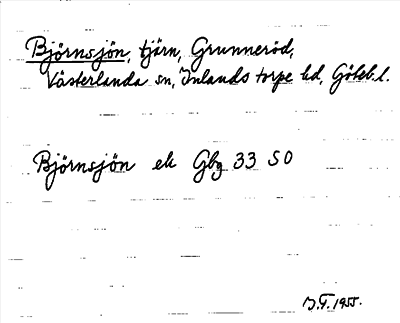 Björnsjön, tjärn, Grunneröd,
Västerlanda sn, Inlands torpe hd, Göteb. l.
Björnsjön ek Gbg 33 SO
J.F. 1955.